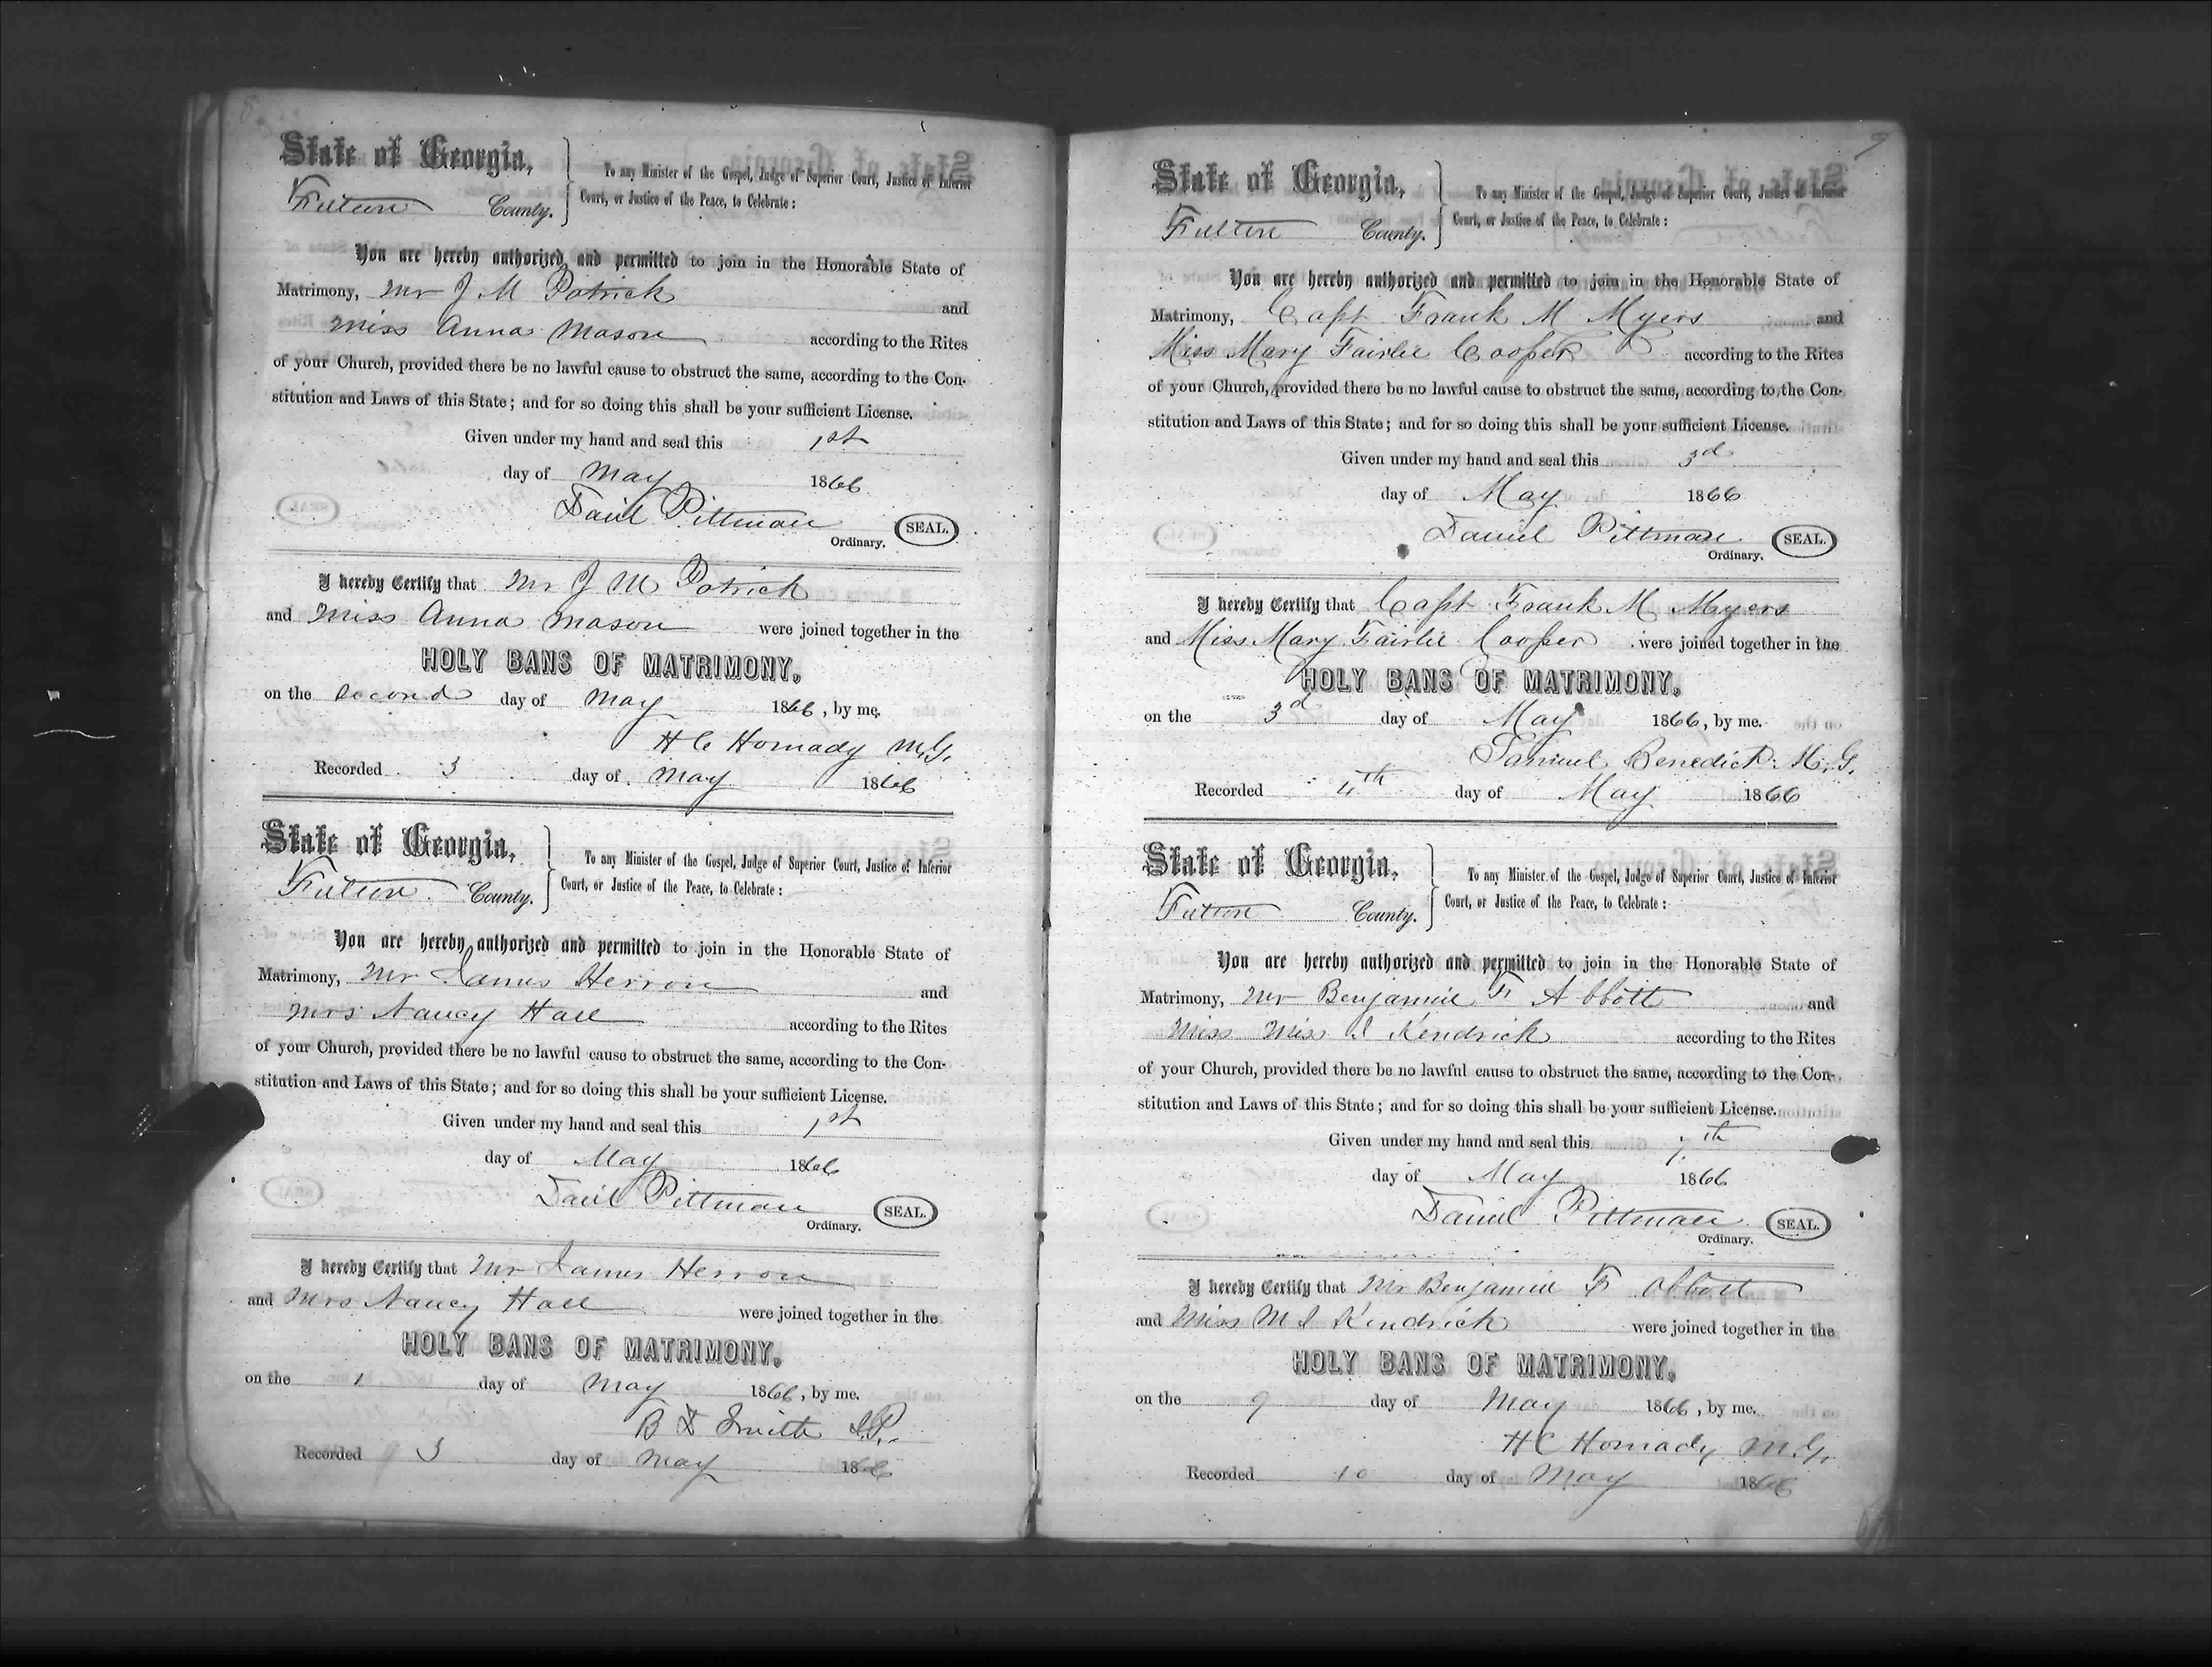 8
State of Georgia,
Fulton County.
To any Minister of the Gospel, Judge of Superior Court, Justice of Inferior
Court, or Justice of the Peace, to Celebrate :
You are hereby authorized and permitted to join in the Honorable State of
Matrimony, Mr J M Patrick and
Miss Anna Mason according to the Rites
of your Church, provided there be no lawful cause to obstruct the same, according to the Con-
stitution and Laws of this State; and for so doing this shall be your sufficient License.
Given under my hand and seal this 1st
day of May 1866
Danl Pittman SEAL.
Ordinary.
I hereby Certify that Mr J M Patrick
and Miss Anna Mason were joined together in the
HOLY BANS OF MATRIMONY,
on the second day of May 1866, by me.
H C Hornady M.G.
Recorded 3 day of May 1866
State of Georgia,
Fulton County.
To any Minister of the Gospel, Judge of Superior Court, Justice of Inferior
Court, or Justice of the Peace, to Celebrate :
You are hereby authorized and permitted to join in the Honorable State of
Matrimony, Mr James Herron and
Mrs Nancy Hall according to the Rites
of your Church, provided there be no lawful cause to obstruct the same, according to the Con-
stitution and Laws of this State; and for so doing this shall be your sufficient License.
Given under my hand and seal this 1st
day of May 1866
Danl Pittman SEAL.
Ordinary.
I hereby Certify that Mr James Herron
and Mrs Nancy Hall were joined together in the
HOLY BANS OF MATRIMONY,
on the 1 day of May 1866, by me.
B Smith J.P.
Recorded 3 day of May 1866
9
State of Georgia,
Fulton County.
To any Minister of the Gospel, Judge of Superior Court, Justice of Inferior
Court, or Justice of the Peace, to Celebrate :
You are hereby authorized and permitted to join in the Honorable State of
Matrimony, Capt Frank M Myers and
Miss Mary Fairlie Cooper according to the Rites
of your Church, provided there be no lawful cause to obstruct the same, according to the Con-
stitution and Laws of this State; and for so doing this shall be your sufficient License.
Given under my hand and seal this 3d
day of May 1866
Daniel Pittman SEAL.
Ordinary.
I hereby Certify that Capt Frank M Myers
and Miss Mary Fairlie Cooper were joined together in the
HOLY BANS OF MATRIMONY,
on the 3d day of May 1866, by me.
Samuel Benedict M.G.
Recorded 4th day of May 1866
State of Georgia,
Fulton County.
To any Minister of the Gospel, Judge of Superior Court, Justice of Inferior
Court, or Justice of the Peace, to Celebrate :
You are hereby authorized and permitted to join in the Honorable State of
Matrimony, Mr Benjamin F Abbott and
Miss Miss I Kendrick according to the Rites
of your Church, provided there be no lawful cause to obstruct the same, according to the Con-
stitution and Laws of this State; and for so doing this shall be your sufficient License.
Given under my hand and seal this 7th
day of May 1866
Daniel Pittman SEAL.
Ordinary.
I hereby Certify that Mr Benjamin F Abbott
and Miss M I Kendrick were joined together in the
HOLY BANS OF MATRIMONY,
on the 9 day of May 1866, by me.
H C Hornady M.G.
Recorded 10 day of May 1866